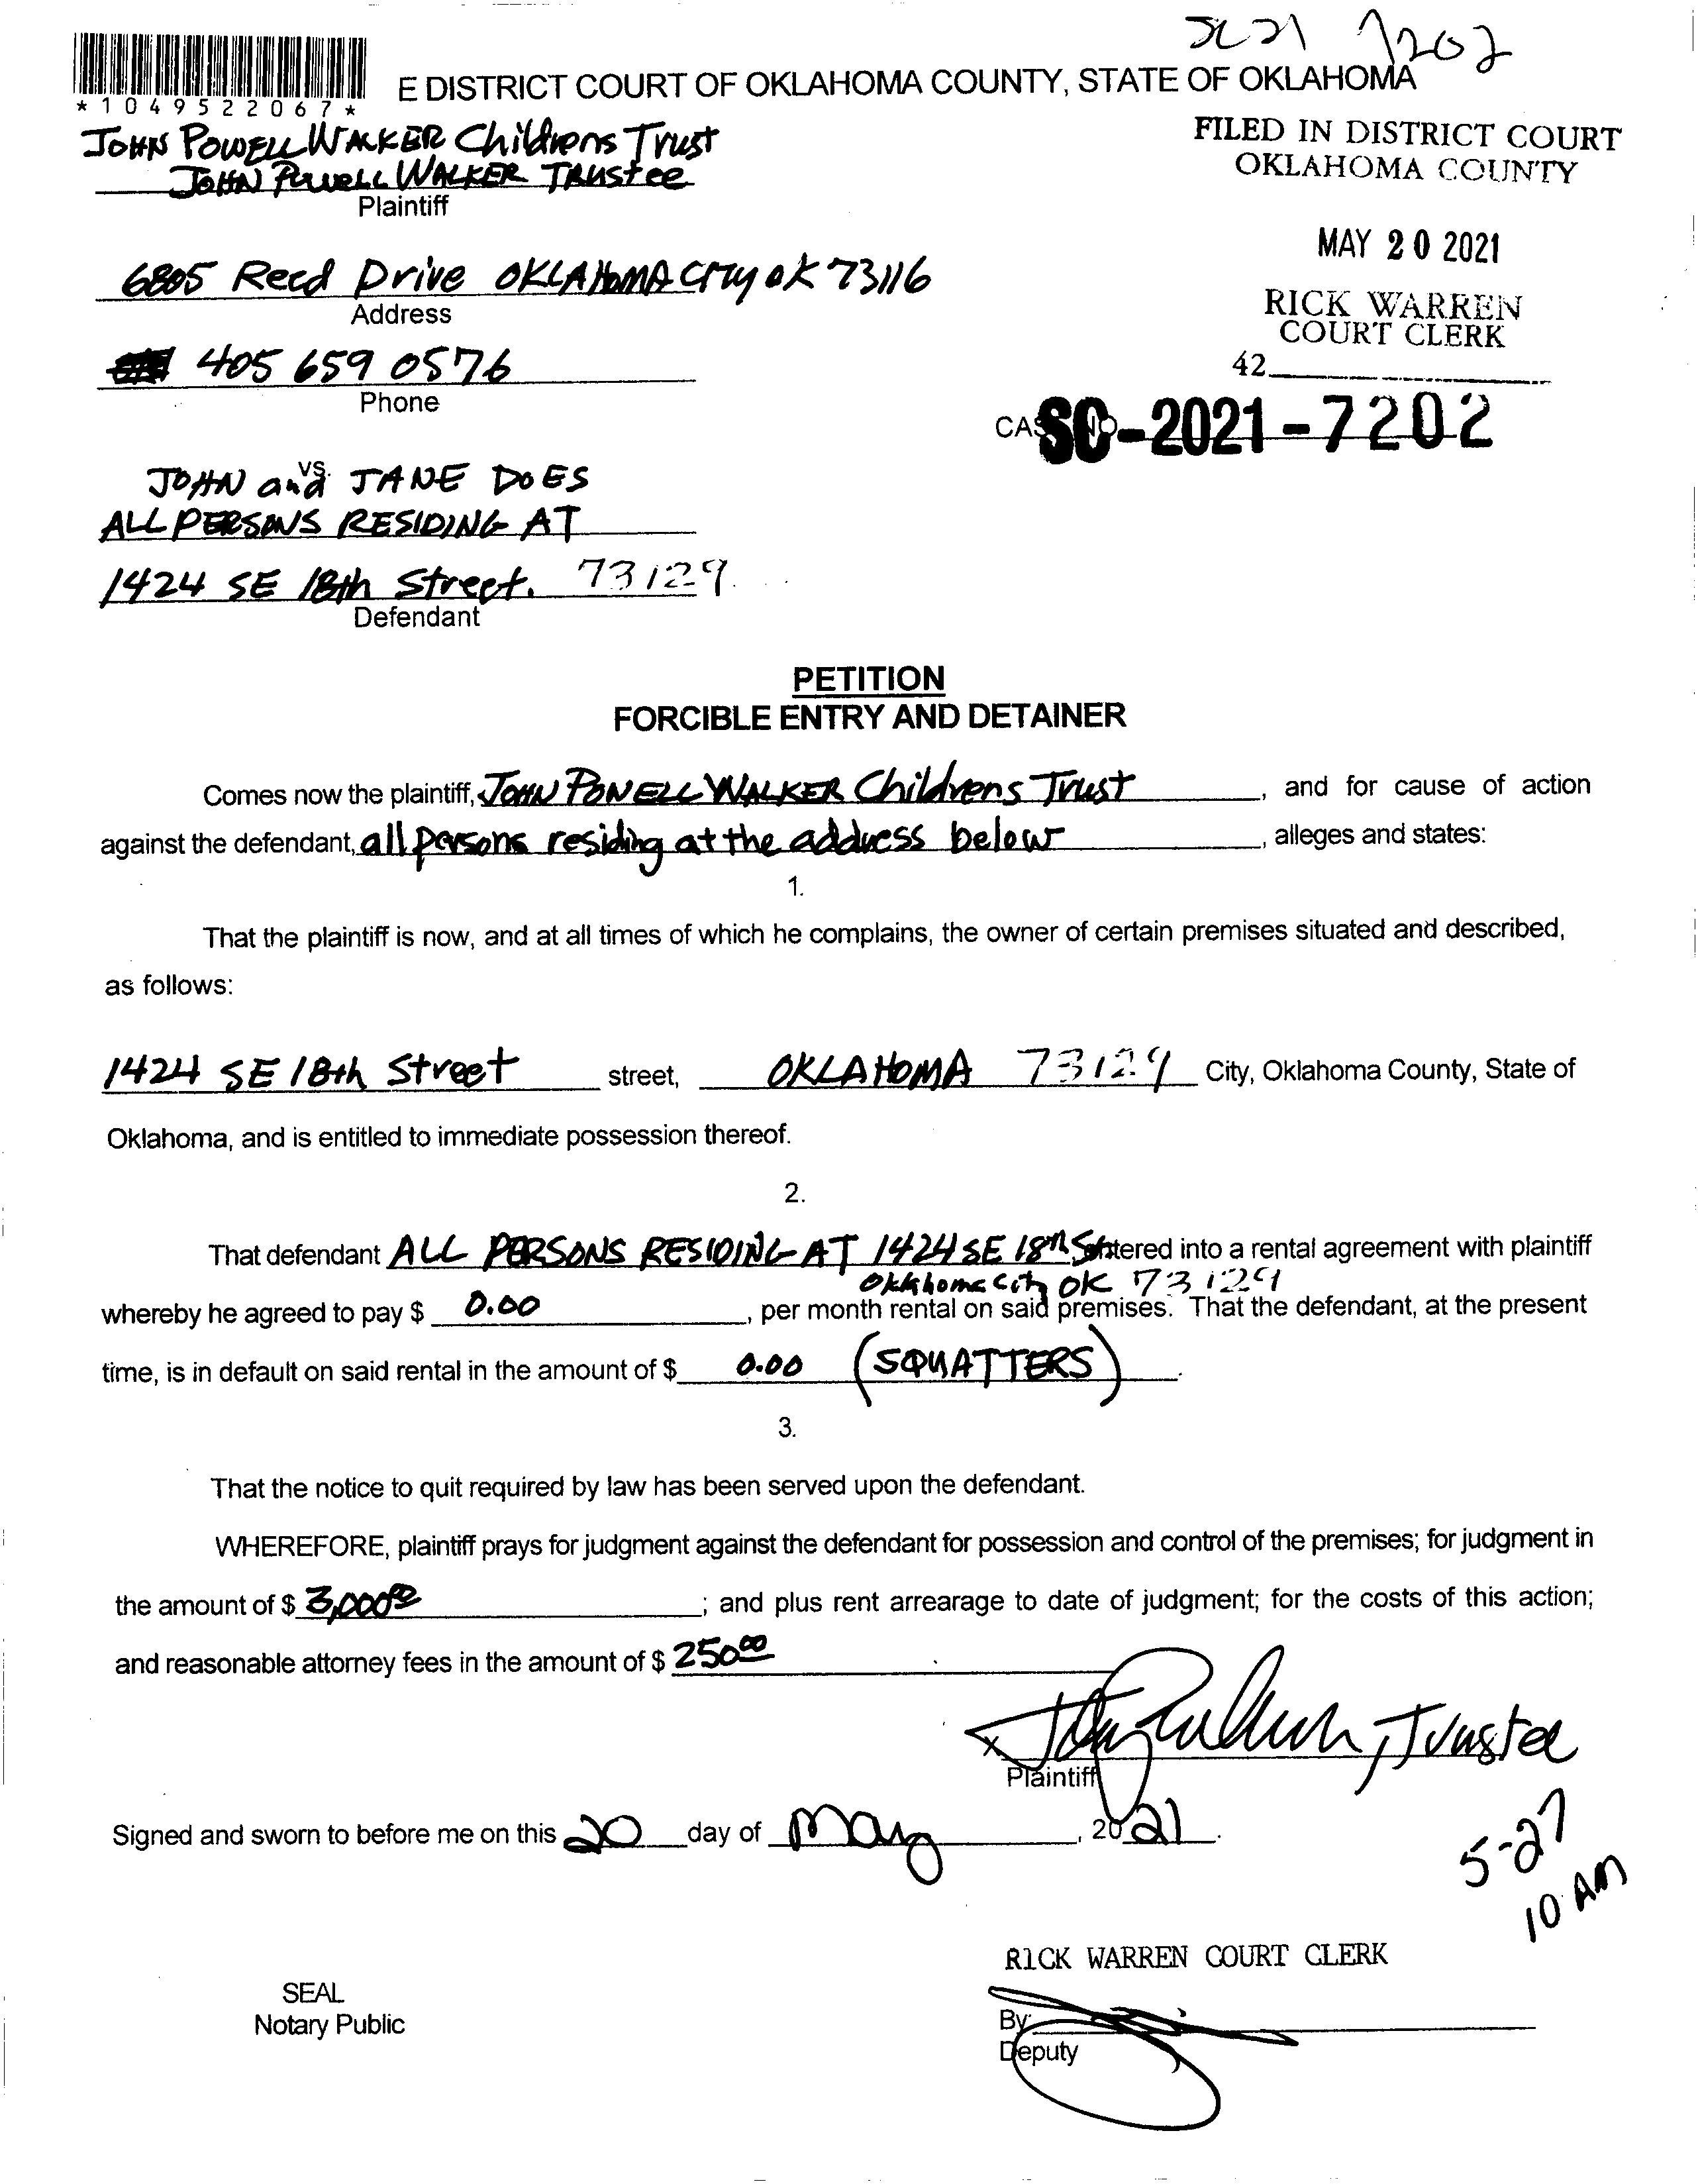 SC 21 7202
*1049522067*
E DISTRICT COURT OF OKLAHOMA COUNTY, STATE OF OKLAHOMA
JOHN POWELL WALKER Childrens Trust
JOHN POWELL WALKER TRUSTEE
Plaintiff
FILED IN DISTRICT COURT
OKLAHOMA COUNTY
MAY 20 2021
RICK WARREN
COURT CLERK
42
6805 Reed Drive OKLAHOMA CITY OK 73116
Address
405 659 0576
Phone
CASE NO SC-2021-7202
vs.
JOHN and JANE DOES
ALL PERSONS RESIDING AT
1424 SE 18th Street. 73129
Defendant
PETITION
FORCIBLE ENTRY AND DETAINER
Comes now the plaintiff, JOHN POWELL WALKER Childrens Trust, and for cause of action
against the defendant, all persons residing at the address below, alleges and states:
1.
That the plaintiff is now, and at all times of which he complains, the owner of certain premises situated and described,
as follows:
1424 SE 18th Street street, OKLAHOMA 73129 City, Oklahoma County, State of
Oklahoma, and is entitled to immediate possession thereof.
2.
That defendant ALL PERSONS RESIDING AT 1424 SE 18th St entered into a rental agreement with plaintiff
Oklahoma City OK 73129
whereby he agreed to pay $ 0.00, per month rental on said premises. That the defendant, at the present
time, is in default on said rental in the amount of $ 0.00 (SQUATTERS).
3.
That the notice to quit required by law has been served upon the defendant.
WHEREFORE, plaintiff prays for judgment against the defendant for possession and control of the premises; for judgment in
the amount of $ 3,000.00; and plus rent arrearage to date of judgment; for the costs of this action;
and reasonable attorney fees in the amount of $ 250.00.
x , Trustee
Plaintiff
Signed and sworn to before me on this 20 day of May, 2021.
5-27
10 AM
RICK WARREN COURT CLERK
SEAL
Notary Public
By:
Deputy